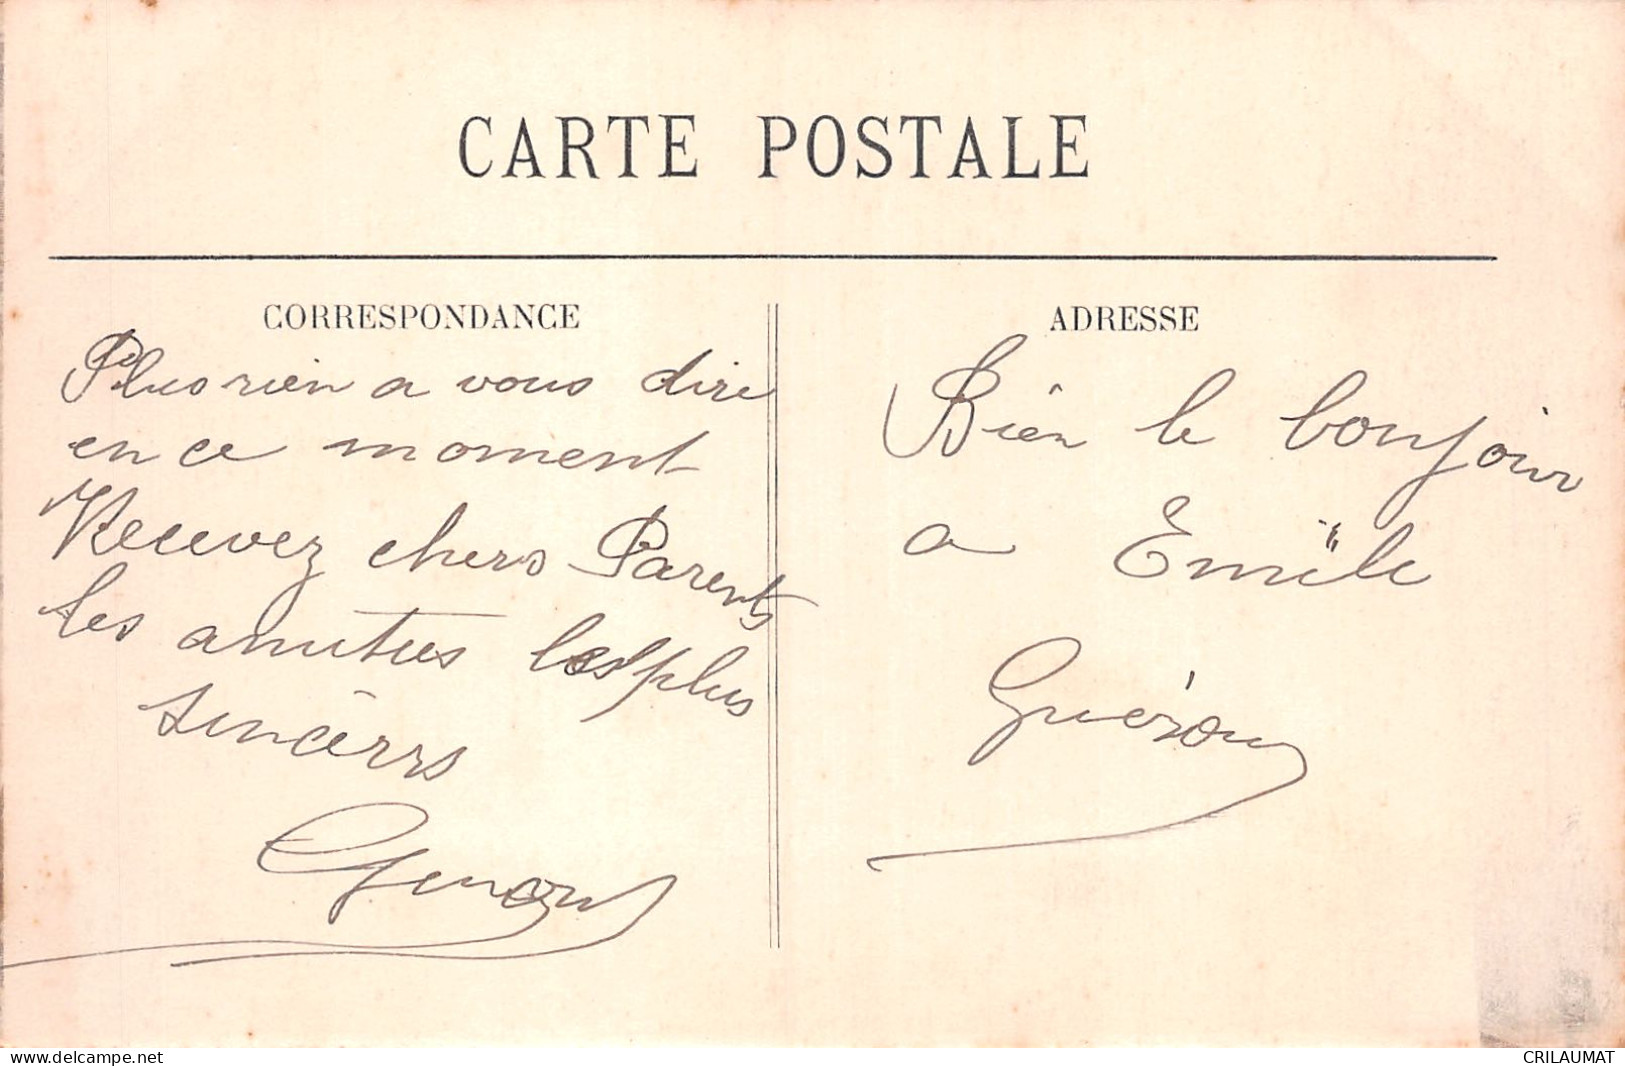 CARTE POSTALE
CORRESPONDANCE
Plus rien a vous dire
en ce moment
Recevez chers Parents
les amitiés les plus
sincèrrs
ADRESSE
Bien le bonjour
a Emile
Guézou
delcampe.net
CRILAUMAT